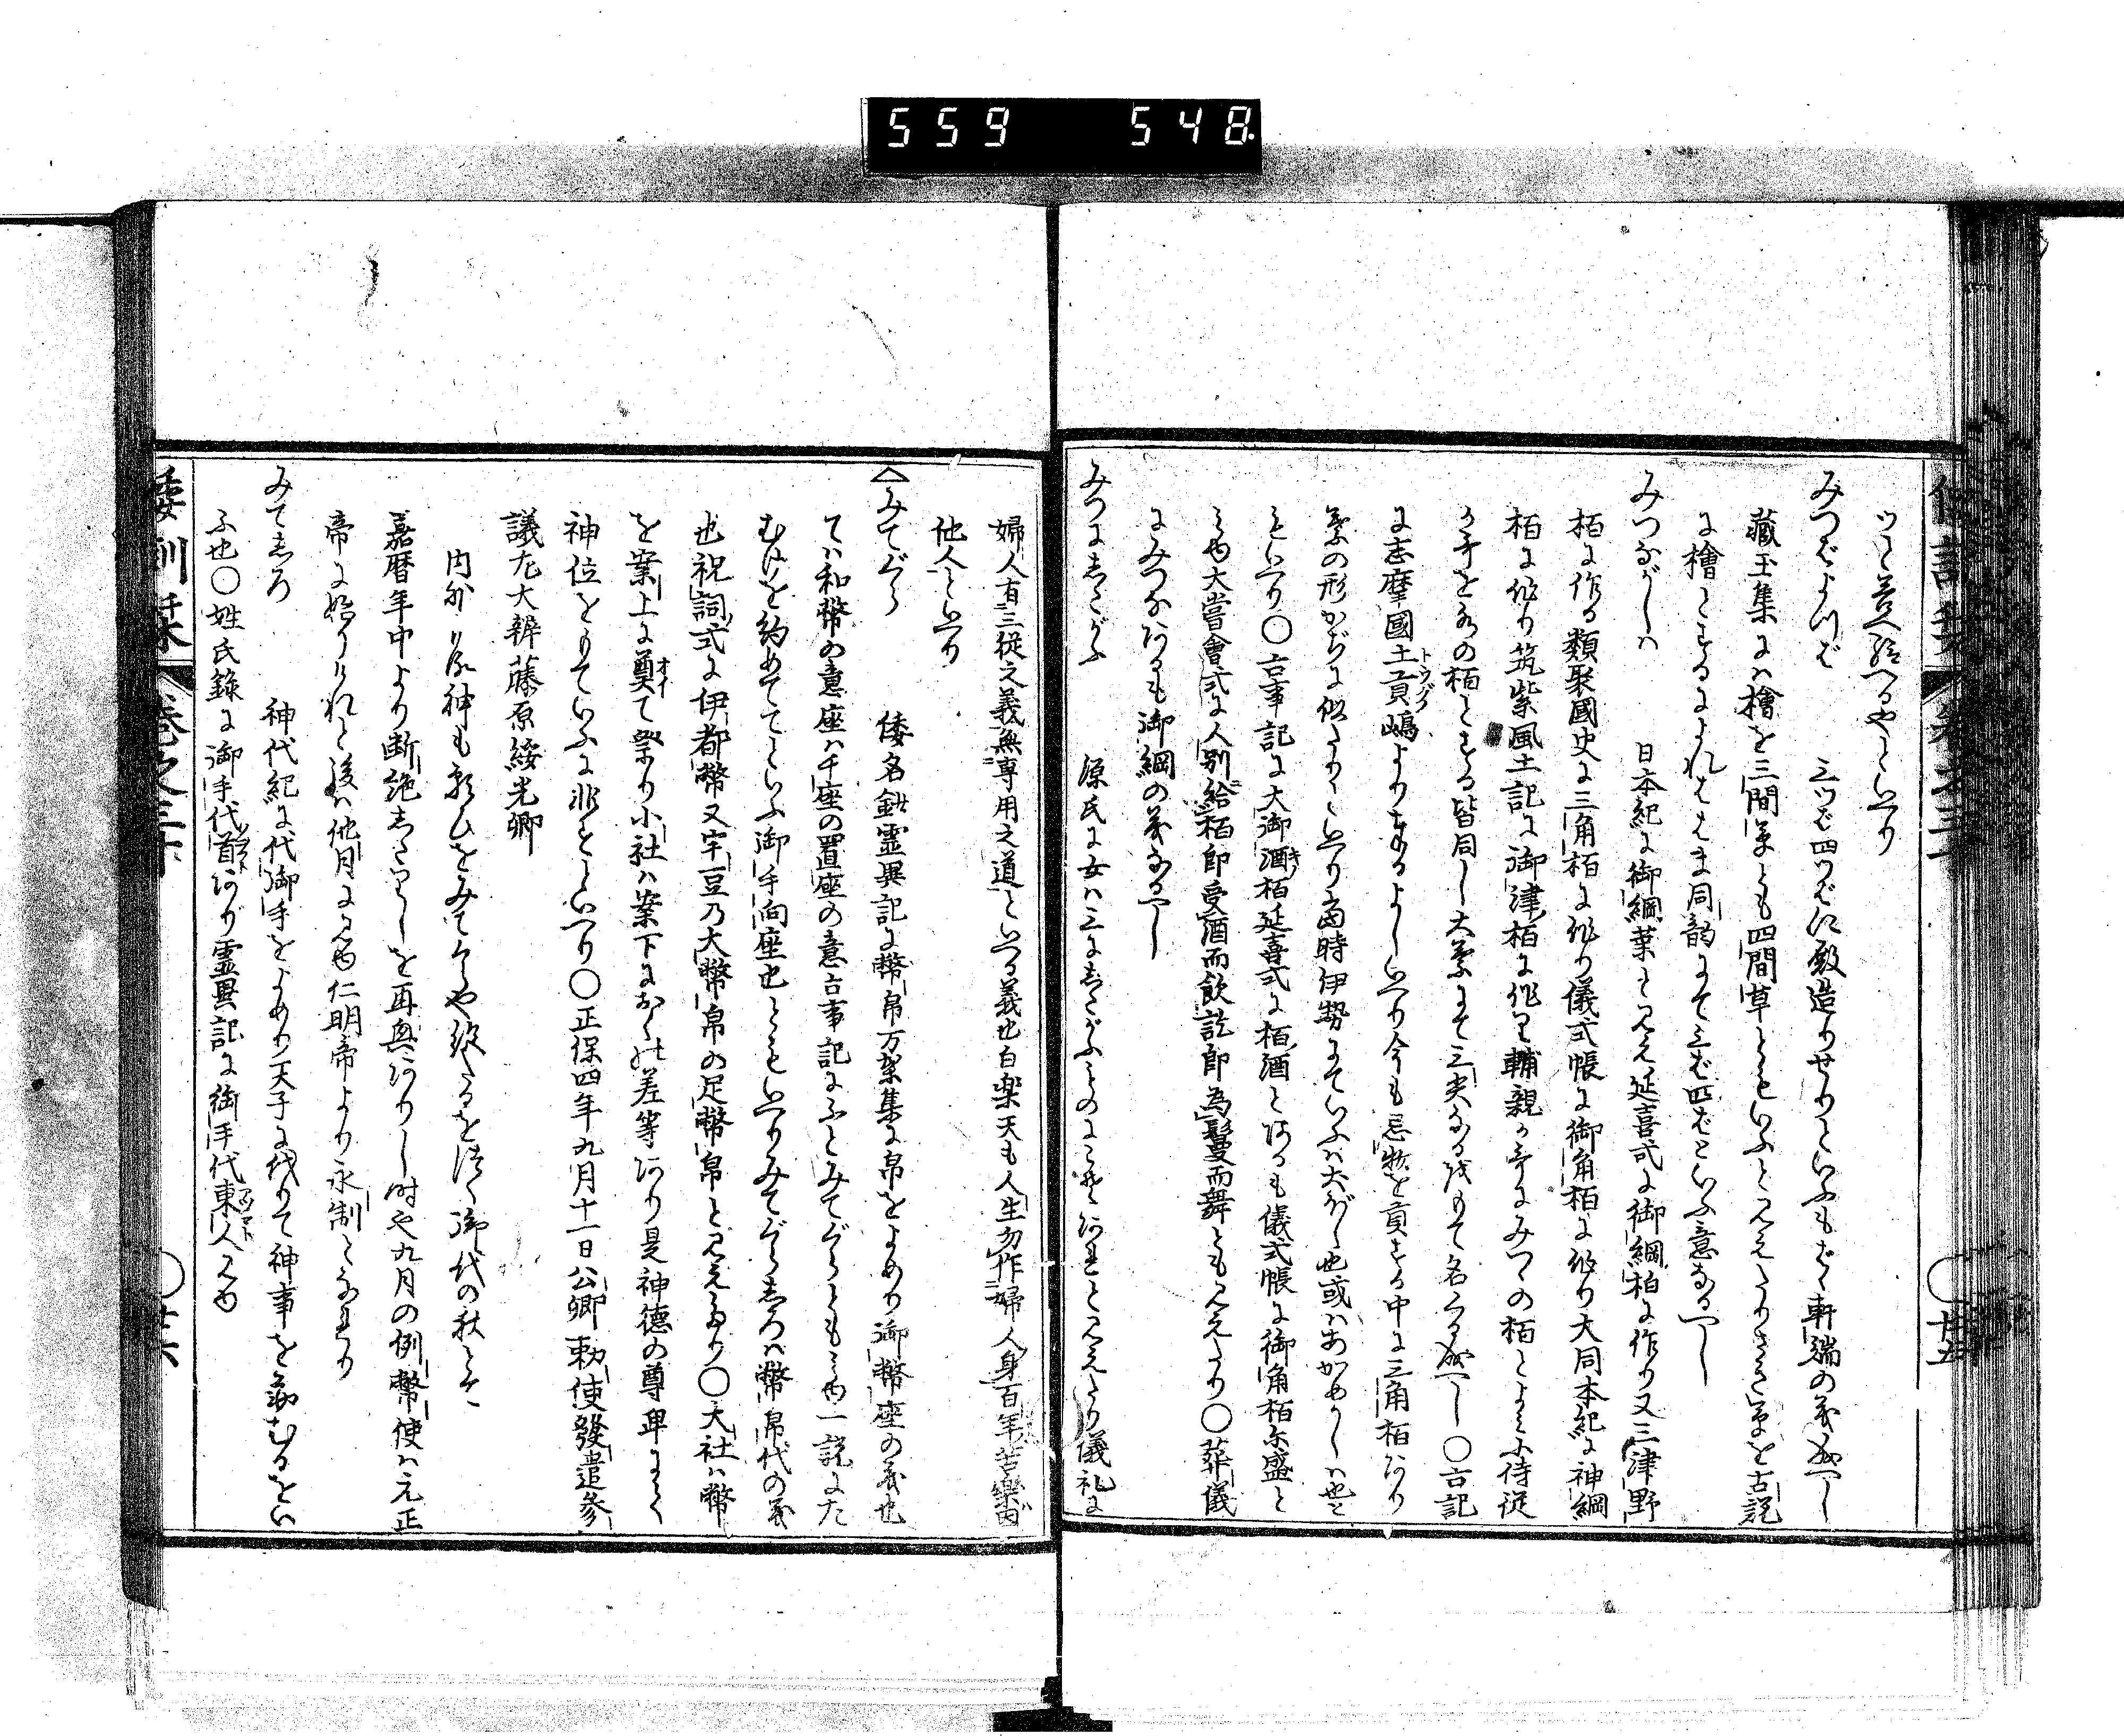 559 548
つと菩薩へるやといへり
みつばよつば 三ツば四ツばに殿造りせりといふもばゝ軒端の義成へし
藏玉集には檜を三間草とも四間草ともいふと見えたりさき草を古説
に檜とするによれはま同韵にて三ば四ばといふ意なるへし
みつながしは 日本紀に御綱葉と見え延喜式に御綱柏に作り又三津野
柏に作る類聚國史に三角柏に作り儀式帳に御角柏に作り大同本紀に神綱
柏に作り筑紫風土記に御津柏に作り輔親か哥にみつゝの柏とよみ小侍従
か哥をみの柏とする皆同し大葉にて三尖なる故もて名くる成へし〇古記
に志摩國土貢嶋より來るよしいへり今も忌物を貢する中に三角柏あり
葉の形かぢに似たりといへり當時伊勢にていふは大がし也或はあかめかしは也と
もいへり〇古事記に大御酒柏延喜式に柏酒とあるも儀式帳に御角柏尓盛と
みゆ大嘗會式に人別給柏即受酒而飲訖即為鬘而舞とも見えたり〇葬儀
にみつなあるも御綱の義なるへし
みつにしたがふ 源氏に女は三にしたがふものにこそあれと見えたり儀礼に
婦人有三従之義無専用之道といへる義也白楽天も人生勿作婦人身百年苦樂因
他人といへり
みてぐら 倭名鈔霊異記に幣帛万葉集に帛をよめり御幣座の義也
ては和幣の意座は千座の置座の意古事記にふとみてぐらともみゆ一説にた
むけを約めててといふ御手向座也ともいへりみてぐらしろは幣帛代の義
也祝詞式に伊都幣又宇豆乃大幣帛の足幣帛と見えたり〇大社は幣
を案上に奠て祭り小社は案下におくの差等あり是神徳の尊卑によりて
神位をもていふに非すといへり〇正保四年九月十一日公卿勅使發遣参
議左大辨藤原綏光卿
内外の神も
嘉暦年中より断絶したりしを再興ありし時や九月の例幣使は元正
帝に始りけれと後は他月に見ゆ仁明帝より永制となれり
みてしろ 神代紀に代御手をよめり天子に代りて神事を勤むるをい
ふ也〇姓氏錄に御手代首あり霊異記に御手代東人見ゆ
倭訓栞 卷之三十 〇廿五
倭訓栞 卷之三十 〇廿六